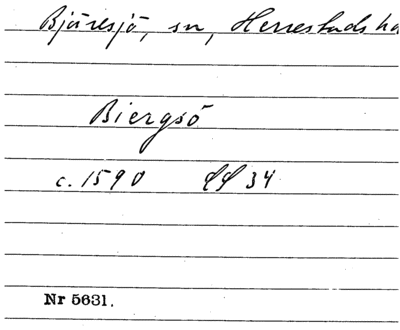 Bjäresjö, sn, Herrestads ha
Biergsö
c. 1590 LL 34
Nr 5631.